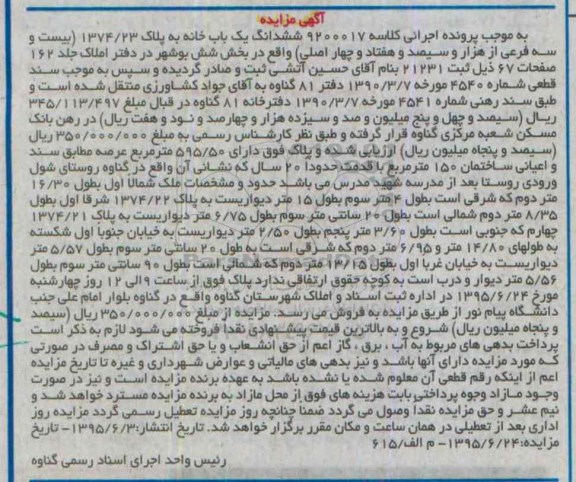 آگهی مزایده
به موجب پرونده اجرائی کلاسه ۹۲۰۰۰۱۷ ششدانگ یک باب خانه به پلاک ۱۳۷۴/۲۳ (بیست و
سه فرعی از هزار و سیصد و هفتاد و چهار اصلی) واقع در بخش شش بوشهر در دفتر املاک جلد ۱۶۲
صفحات ۶۷ ذیل ثبت ۲۱۲۳۱ بنام آقای حسین آتشی ثبت و صادر گردیده و سپس به موجب سند
قطعی شماره ۴۵۴۰۰ مورخه ۱۳۹۰/۳/۷ دفتر ۸۱ گناوه به آقای جواد کشاورزی منتقل شده است و
طبق سند رهنی شماره ۴۵۴۱ مورخه ۱۳۹۰/۳/۷ دفترخانه ۸۱ گناوه در قبال مبلغ ۳۴۵/۱۱۳/۴۹۷
ریال (سیصد و چهل و پنج میلیون و صد و سیزده هزار و چهارصد و نود و هفت ریال) در رهن بانک
مسکن شعبه مرکزی گناوه قرار گرفته و طبق نظر کارشناس رسمی به مبلغ ۳۵۰/۰۰۰/۰۰۰ ریال
(سیصد و پنجاه میلیون ریال) ارزیابی شده و پلاک فوق دارای ۵۹۵/۵۰ مترمربع عرصه مطابق سند
و اعیانی ساختمان ۱۵۰ مترمربع با قدمت حدودا ۲۰ سال که نشانی آن واقع در گناوه روستای شول
ورودی روستا بعد از مدرسه شهید مدرس می باشد حدود و مشخصات ملک شمالا اول بطول ۱۶/۳۰
متر دوم که شرقی است بطول ۴ متر سوم بطول ۱۵ متر دیواریست به پلاک ۱۳۷۴/۲۲ شرقا اول بطول
۸/۳۵ متر دوم شمالی است بطول ۲۰ سانتی متر سوم بطول ۶/۷۵ متر دیواریست به پلاک ۱۳۷۴/۲۱
چهارم که جنوبی است بطول ۳/۶۰ متر پنجم بطول ۲/۵۰ متر دیواریست به خیابان جنوبا اول شکسته
به طولهای ۱۴/۸۰ متر و ۶/۹۵ متر دوم که شرقی است به طول ۲۰ سانتی متر سوم بطول ۵/۵۷ متر
دیواریست به خیابان غربا اول بطول ۱۳/۱۵ متر دوم که شمالی است بطول ۹۰ سانتی متر سوم بطول
۵/۵۶ متر دیوار و درب است به کوچه حقوق ارتفاقی ندارد پلاک فوق از ساعت ۹ الی ۱۲ روز چهارشنبه
مورخ ۱۳۹۵/۶/۲۴ در اداره ثبت اسناد و املاک شهرستان گناوه واقع در گناوه بلوار امام علی جنب
دانشگاه پیام نور از طریق مزایده به فروش می رسد. مزایده از مبلغ ۳۵۰/۰۰۰/۰۰۰ ریال (سیصد
و پنجاه میلیون ریال) شروع و به بالاترین قیمت پیشنهادی نقدا فروخته می شود لازم به ذکر است
پرداخت بدهی های مربوط به آب ، برق ، گاز اعم از حق انشعاب و یا حق اشتراک و مصرف در صورتی
که مورد مزایده دارای آنها باشد و نیز بدهی های مالیاتی و عوارض شهرداری و غیره تا تاریخ مزایده
اعم از اینکه رقم قطعی آن معلوم شده یا نشده باشد به عهده برنده مزایده است و نیز در صورت
وجود مازاد وجوه پرداختی بابت هزینه های فوق از محل مازاد به برنده مزایده مسترد خواهد شد و
نیم عشر و حق مزایده نقدا وصول می گردد ضمنا چنانچه روز مزایده تعطیل رسمی گردد مزایده روز
اداری بعد از تعطیلی در همان ساعت و مکان مقرر برگزار خواهد شد. تاریخ انتشار: ۱۳۹۵/۶/۳- تاریخ
مزایده: ۱۳۹۵/۶/۲۴- م الف/۶۱۵
رئیس واحد اجرای اسناد رسمی گناوه